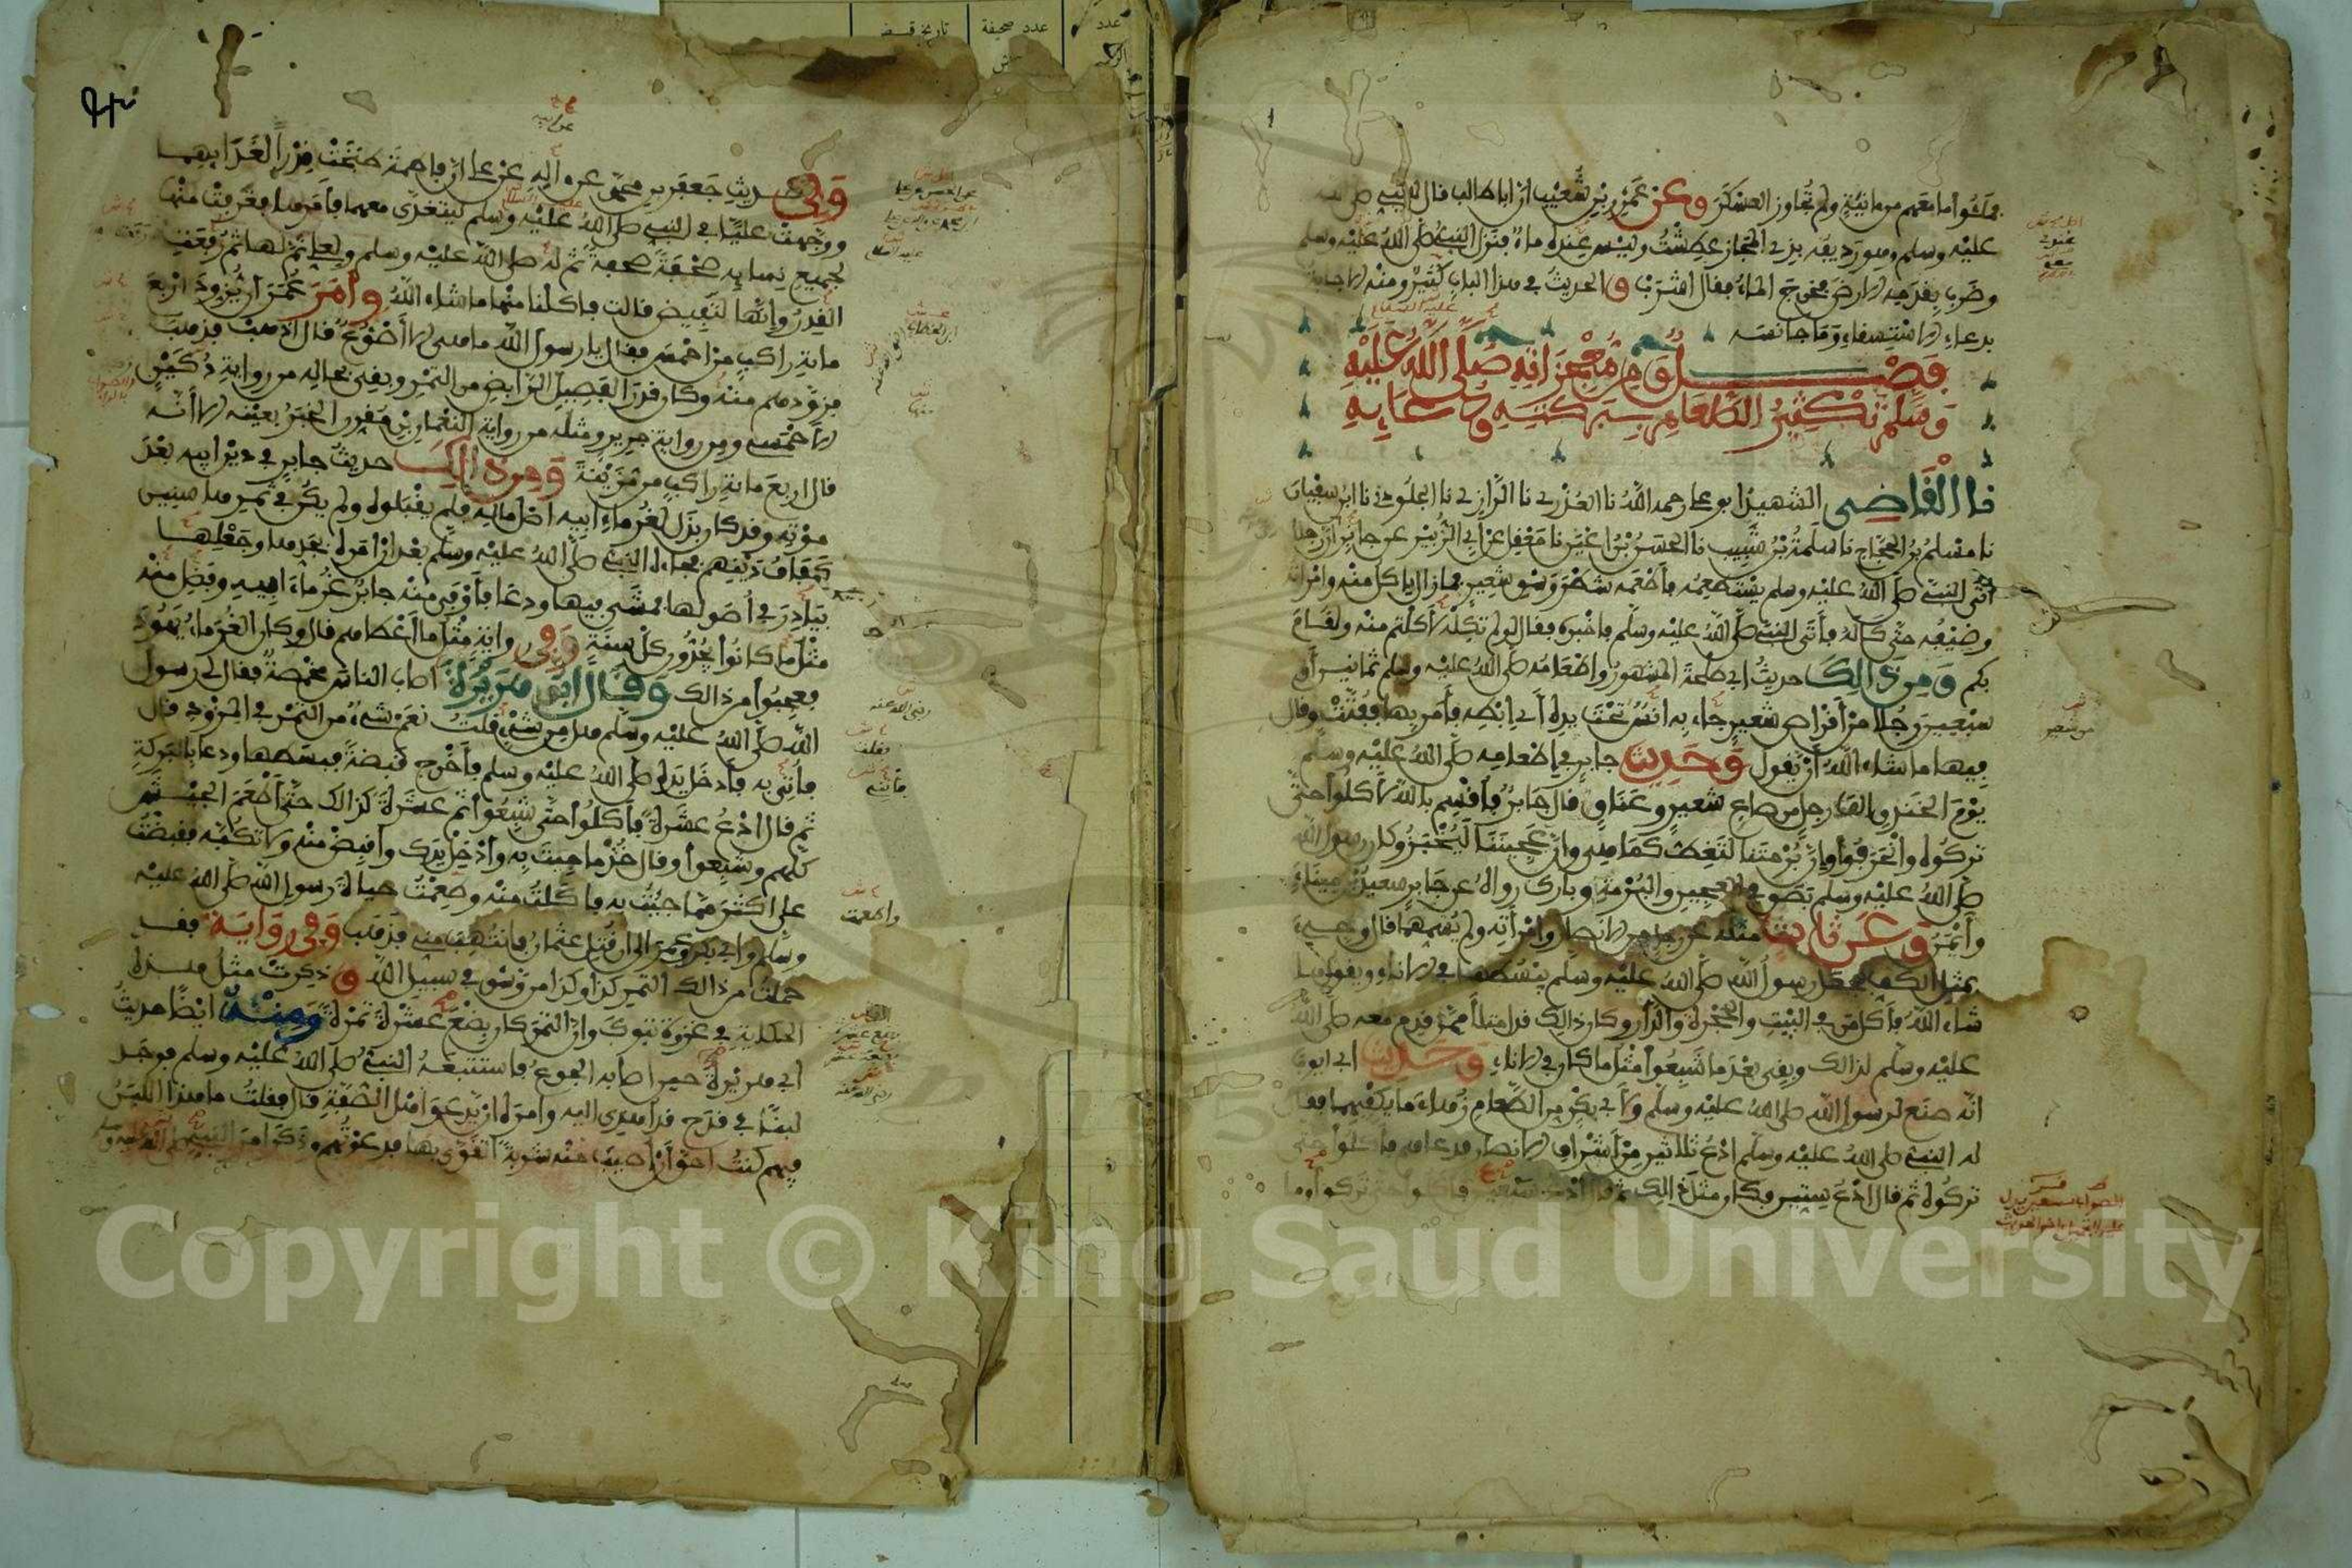 فملئوا ما معهم من مانية ولم تجاوز العسكر وعن عمرو بن شعيب ان ابا طالب قال للنبي صلى الله
عليه وسلم وهو رديفه بذي المجاز عطشت وليس عندي ماء فنزل النبي صلى الله عليه وسلم
وضرب بقدمه الارض فخرج الماء فقال اشرب والحديث في هذا الباب كثير ومنه الاجابة
بدعاء الاستسقاء وما جانسه
فصل ومن معجزاته صلى الله عليه
وسلم تكثير الطعام ببركته ودعايه
قال القاضي الشهيد ابو علي رحمه الله نا العذري نا الرازي نا الجلودي نا ابن سفيان
نا مسلم بن الحجاج نا سلمة بن شبيب نا الحسن بن اعين نا معقل عن ابي الزبير عن جابر ان رجلا
اتى النبي صلى الله عليه وسلم يستطعمه فاطعمه شطر وسق شعير فما زال ياكل منه وامراته
وضيفه حتى كاله فأتى النبي صلى الله عليه وسلم فاخبره فقال لو لم تكله لاكلتم منه ولقام
بكم ومن ذالك حديث ابي طلحة المشهور واطعامه صلى الله عليه وسلم ثمانين أو
سبعين رجلا من أقراص شعير جاء بها انس تحت يده أي ابطه فأمر بها ففتت وقال
فيها ما شاء الله أن يقول وحديث جابر في إطعامه صلى الله عليه وسلم
يوم الخندق الف رجل من صاع شعير وعناق قال جابر فأقسم بالله لأكلوا حتى
تركوه وانحرفوا وإن برمتنا لتغط كما هي وإن عجيننا ليخبز وكان رسول الله
صلى الله عليه وسلم بصق في العجين والبرمة وبارك رواه عن جابر سعيد بن ميناء
وأيمن وعن ثابت مثله عن رجل من الانصار وامرأته ولم يسمهما قال وجيء
بمثل الكف فجعل رسول الله صلى الله عليه وسلم يبسطها في الاناء ويقول ما
شاء الله فأكل من في البيت والحجرة والدار وكان ذالك قد امتلأ ممن قدم معه صلى الله
عليه وسلم لذالك وبقي بعد ما شبعوا مثل ما كان في الاناء وحديث ابي ايوب
انه صنع لرسول الله صلى الله عليه وسلم ولأبي بكر من الطعام زهاء ما يكفيهما فقال
له النبي صلى الله عليه وسلم ادع ثلاثين من أشراف الانصار فدعاهم فأكلوا حتى
تركوه ثم قال ادع ستين فكان مثل ذالك ثم قال ادع سبعين فاكلوا حتى تركوا وما
وفي حديث جعفر بن محمد عن ابيه عن علي ان فاطمة طبخت قدرا لغدايهما
ووجهت عليا الى النبي صلى الله عليه وسلم ليتغدى معهما فأمرها فغرفت منها
لجميع نسايه صحفة صحفة ثم له صلى الله عليه وسلم ولعلي ثم لها ثم رفعت
القدر وإنها لتفيض قالت فأكلنا منها ما شاء الله وأمر عمر أن يزود اربع
ماية راكب من احمس فقال يا رسول الله ما هي الا أصوع قال اذهب فذهب
فزودهم منه وكان قدر الفصيل الرابض من التمر وبقي بحاله من رواية دكين
الاحمسي ومن رواية جرير ومثله من رواية النعمان بن مقرن الخبر بعينه الا أنه
قال اربع ماية راكب من مزينة ومن ذالك حديث جابر في دين ابيه بعد
موته وقد كان بذل لغرماء ابيه اصل ماله فلم يقبلوه ولم يكن في ثمرها سنين
كفاف دينهم فجاءه النبي صلى الله عليه وسلم بعد ان امره بجدها وجعلها
بيادر في أصولها فمشى فيها ودعا فأوفى منه جابر غرماء ابيه وفضل منه
مثل ما كانوا يجدون كل سنة وفي رواية مثل ما اعطاهم قال وكان الغرماء يهود
فعجبوا من ذالك وقال ابو هريرة اصاب الناس مخمصة فقال لي رسول
الله صلى الله عليه وسلم هل من شيء قلت نعم شيء من التمر في المزود قال
فأتني به فأدخل يده صلى الله عليه وسلم فأخرج قبضة فبسطها ودعا بالبركة
ثم قال ادع عشرة فأكلوا حتى شبعوا ثم عشرة كذالك حتى أطعم الجيش
كلهم وشبعوا وقال خذ ما جيت به وأدخل يدك واقبض منه ولا تكبه فقبضت
على اكثر مما جيت به فأكلت منه وطعمت حياة رسول الله صلى الله عليه
وسلم وابي بكر وعمر الى ان قتل عثمان فانتهب مني فذهب وفي رواية فقد
حملت من ذالك التمر كذا وكذا من وسق في سبيل الله وذكرت مثل هذه
الحكاية في غزوة تبوك وان التمر كان بضع عشرة تمرة ومنه ايضا حديث
ابي هريرة حين اصابه الجوع فاستتبعه النبي صلى الله عليه وسلم فوجد
لبنا في قدح قد اهدي اليه وامره ان يدعو اهل الصفة قال فقلت ما هذا اللبن
فيهم كنت احق ان اصيب منه شربة اتقوى بها فدعوتهم وذكر امر النبي صلى الله عليه وسلم